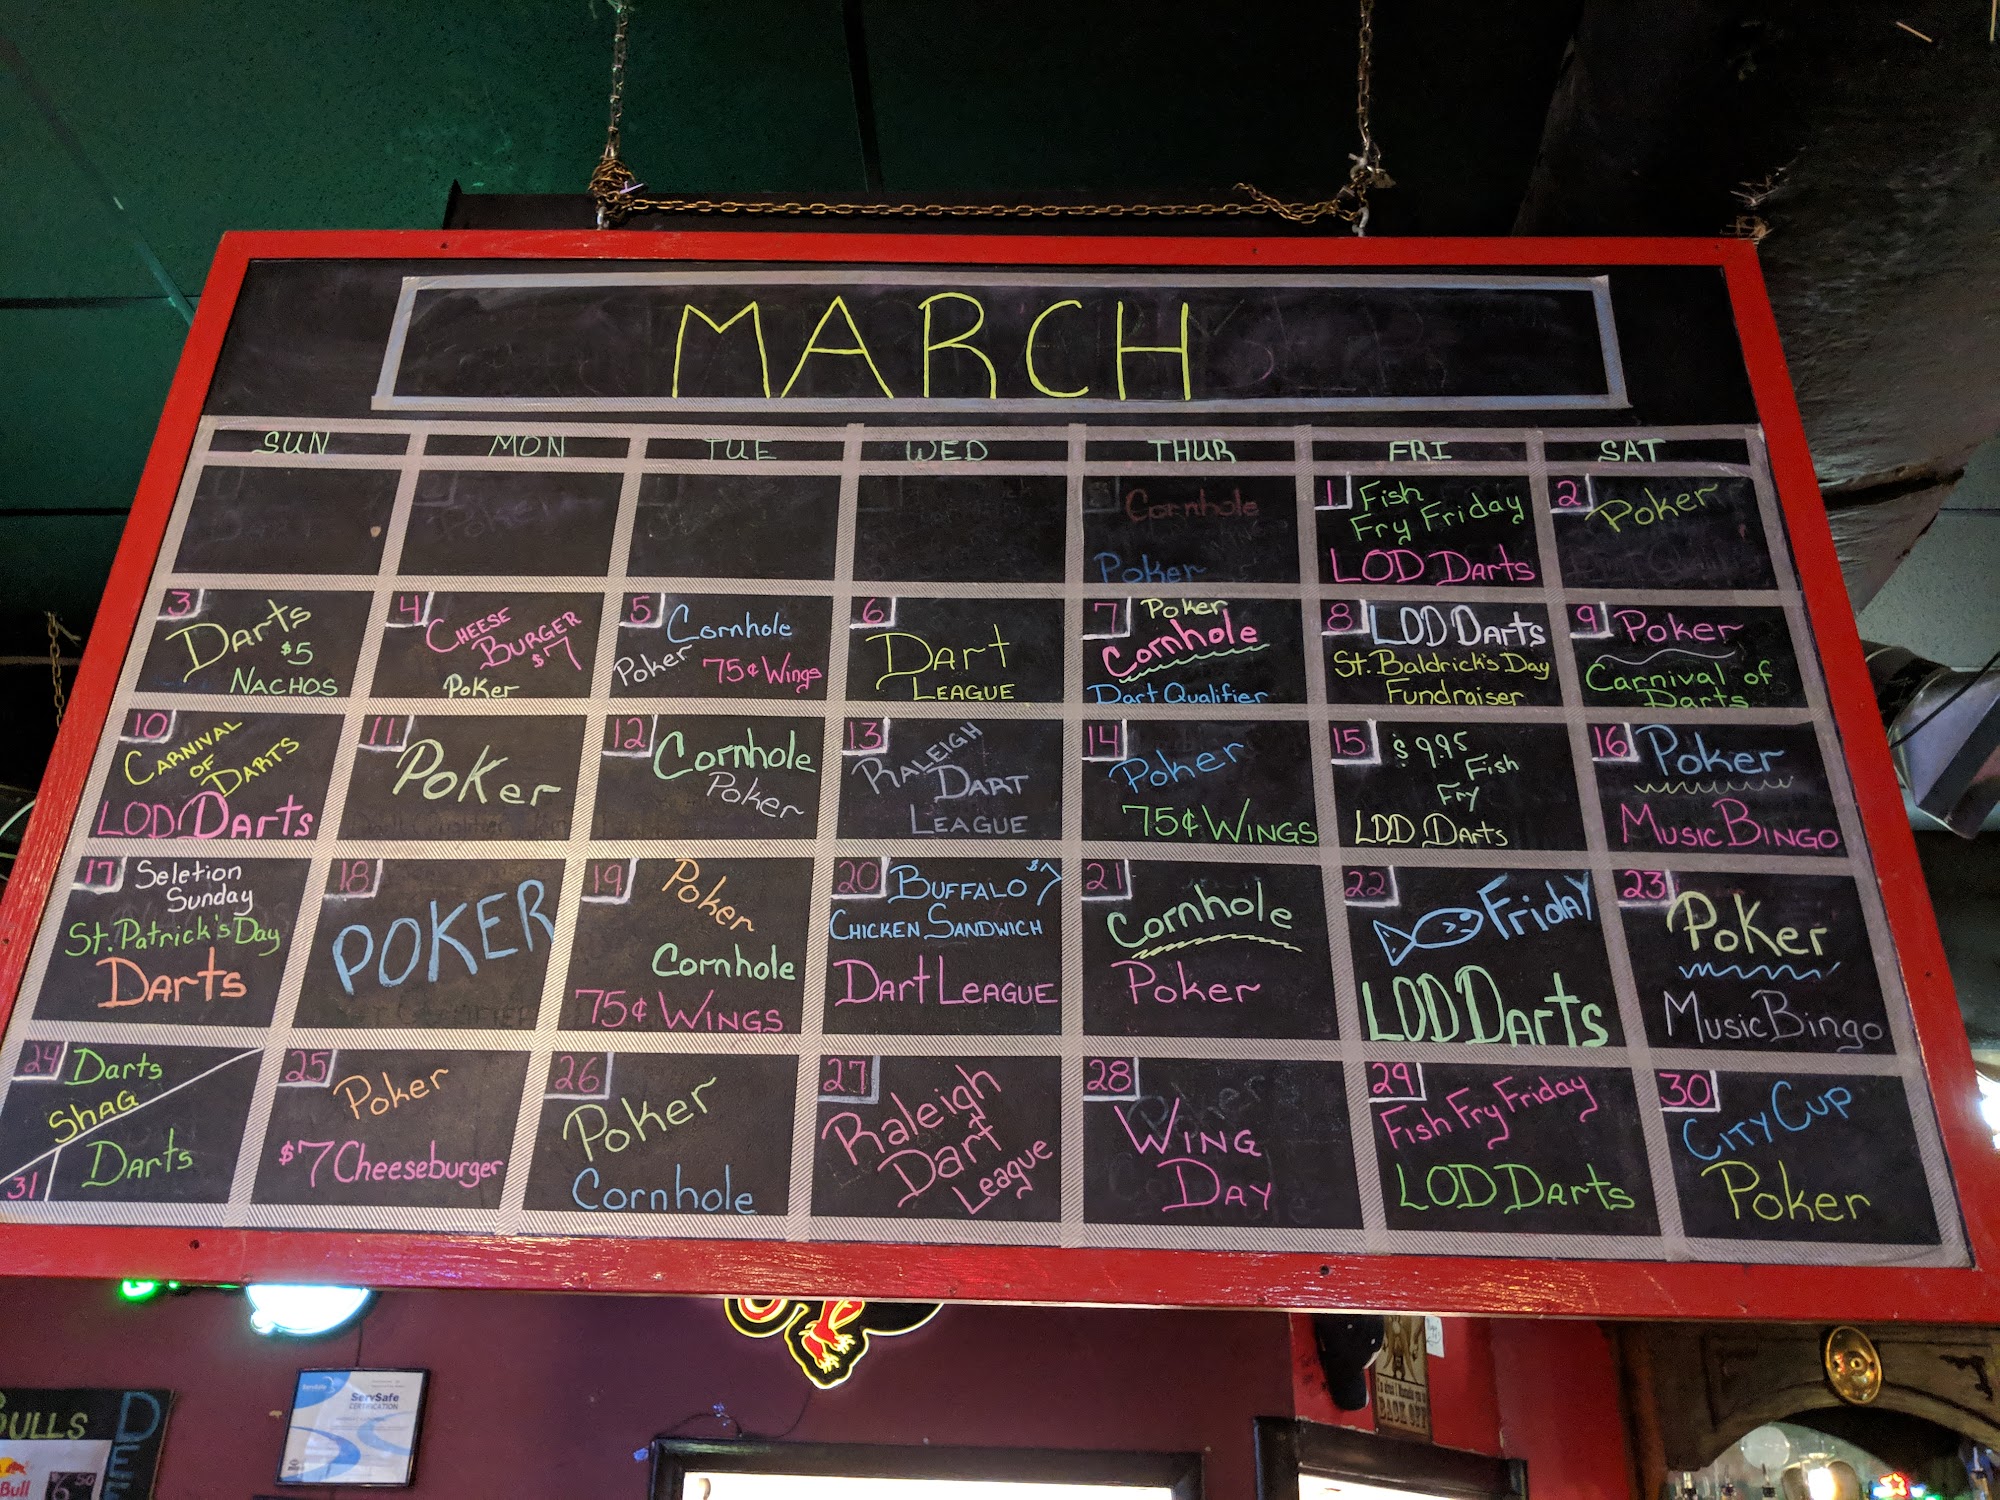 MARCH
SUN MON TUE WED THUR FRI SAT
Cornhole
Poker
1 Fish
Fry Friday
LOD Darts
2 Poker
3 Darts
$5
NACHOS
4 CHEESE
BURGER
$7
Poker
5 Cornhole
Poker 75¢ Wings
6 Dart
LEAGUE
7 Poker
Cornhole
Dart Qualifier
8 LOD Darts
St. Baldrick's Day
Fundraiser
9 Poker
Carnival of
Darts
10 CARNIVAL
OF DARTS
LOD Darts
11 Poker
12 Cornhole
Poker
13 RALEIGH
DART
LEAGUE
14 Poker
75¢ WINGS
15 $9.95
Fish
Fry
LOD Darts
16 Poker
MUSIC BINGO
17 Seletion
Sunday
St. Patrick's Day
DARTS
18 POKER
19 Poker
Cornhole
75¢ WINGS
20 BUFFALO $7
CHICKEN SANDWICH
DART LEAGUE
21 Cornhole
Poker
22 Friday
LOD Darts
23 Poker
Music Bingo
24 Darts
SHAG
31 Darts
25 Poker
$7 Cheeseburger
26 Poker
Cornhole
27 Raleigh
Dart
League
28 Poker
WING
DAY
29 Fish Fry Friday
LOD Darts
30 CITY CUP
Poker
BULLS
Bull
6 50
D
E
ServSafe
ServSafe
CERTIFICATION
BACK OFF